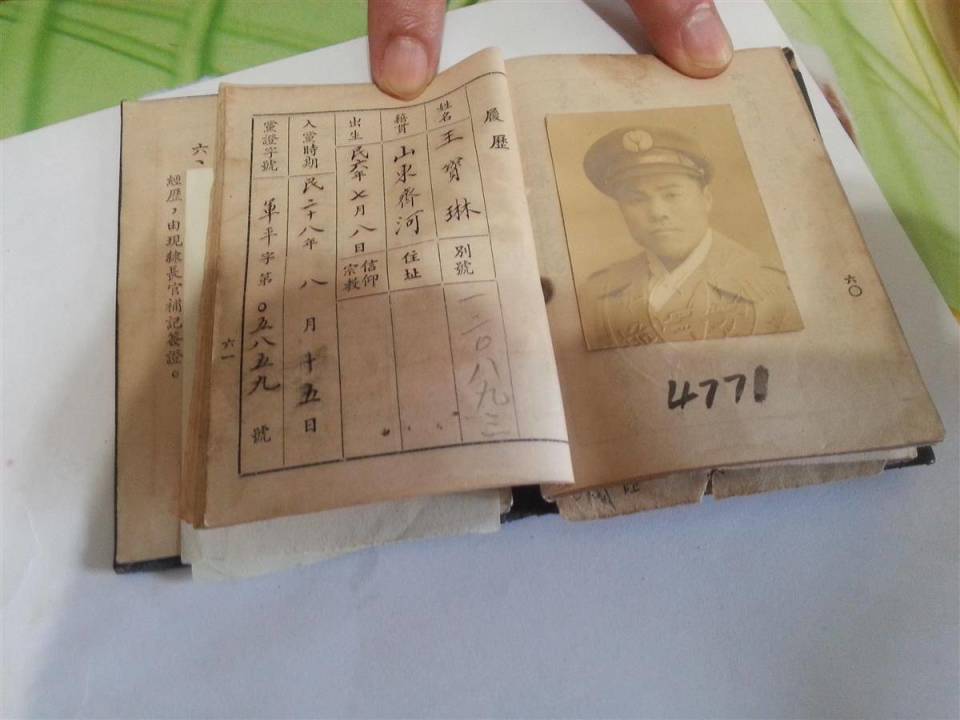 六〇
4771
履歷
姓名 王寶琳 別號 一二〇八九三
籍貫 山東齊河 住址
出生 民六年七月八日 信仰宗教
入黨時期 民二十八年八月十五日
黨證字號 軍平字第〇五八五九號
六一
六、
經歷，由現隸長官補記簽證。